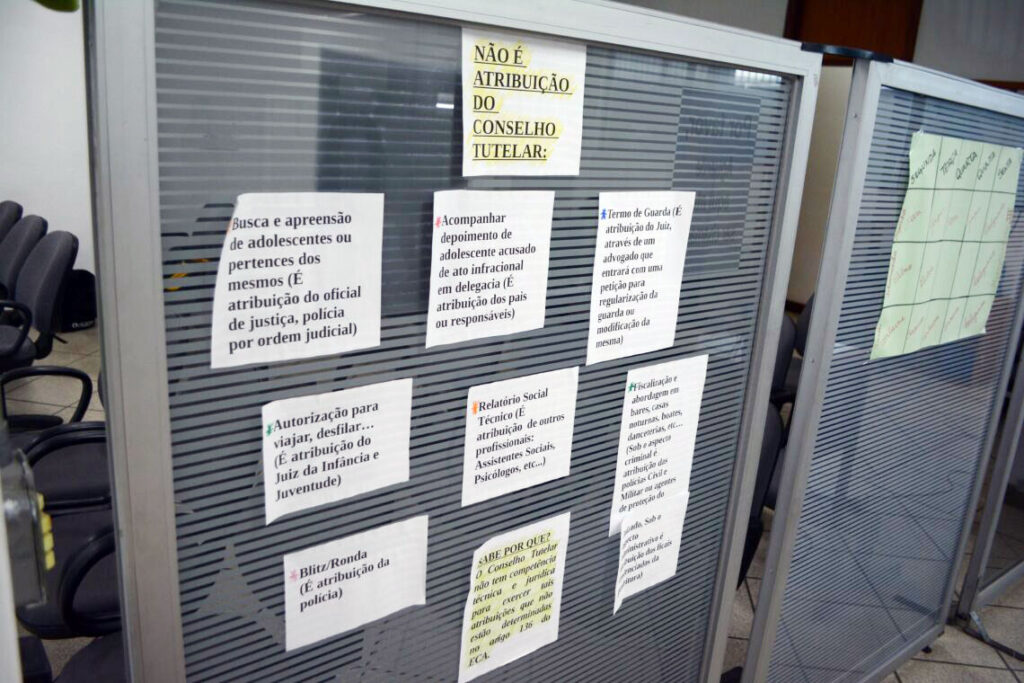 NÃO É
ATRIBUIÇÃO
DO
CONSELHO
TUTELAR:
Busca e apreensão
de adolescentes ou
pertences dos
mesmos (É
atribuição do oficial
de justiça, polícia
por ordem judicial)
Acompanhar
depoimento de
adolescente acusado
de ato infracional
em delegacia (É
atribuição dos pais
ou responsáveis)
Termo de Guarda (É
atribuição do Juiz,
através de um
advogado que
entrará com uma
petição para
regularização da
guarda ou
modificação da
mesma)
Autorização para
viajar, desfilar…
(É atribuição do
Juiz da Infância e
Juventude)
Relatório Social
Técnico (É
atribuição de outros
profissionais:
Assistentes Sociais,
Psicólogos, etc...)
Fiscalização e
abordagem em
bares, casas
noturnas, boates,
danceterias, etc...
(Sob o aspecto
criminal é
atribuição das
polícias Civil e
Militar ou agentes
de proteção do
Sob o
Blitz/Ronda
(É atribuição da
polícia)
SABE POR QUE?
O Conselho Tutelar
não tem competência
técnica e jurídica
para exercer tais
atribuições que não
estão determinadas
no artigo 136 do
ECA.
SEGUNDA
TERÇA
QUARTA
QUINTA
SEXTA